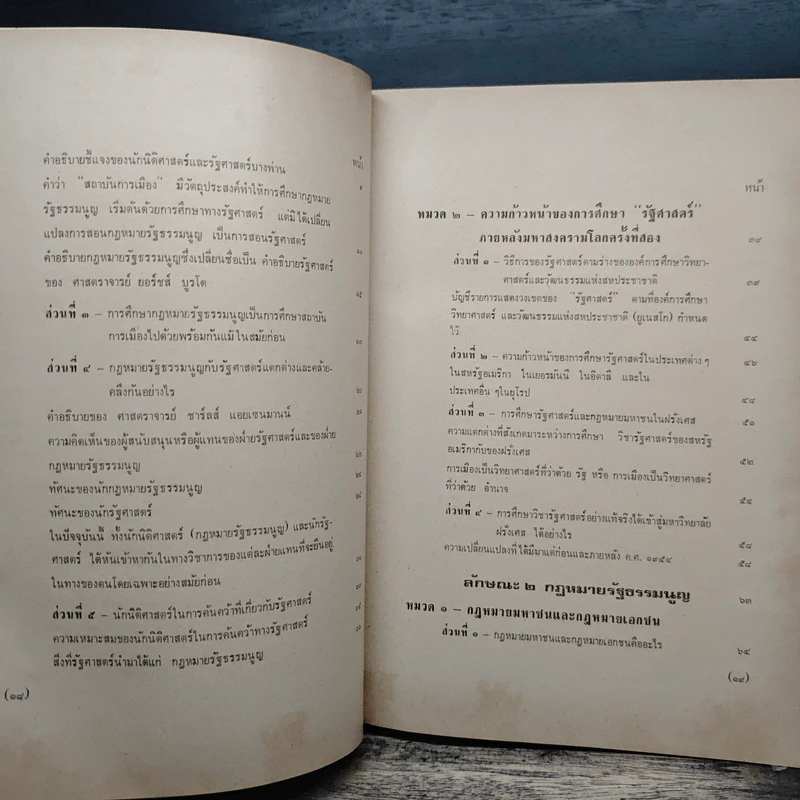 หน้า
คำอธิบายชี้แจงของนักนิติศาสตร์และรัฐศาสตร์บางท่าน
คำว่า "สถาบันการเมือง" มีวัตถุประสงค์ทำให้การศึกษากฎหมาย
รัฐธรรมนูญ เริ่มต้นด้วยการศึกษาทางรัฐศาสตร์ แต่มิได้เปลี่ยน
แปลงการสอนกฎหมายรัฐธรรมนูญ เป็นการสอนรัฐศาสตร์
คำอธิบายกฎหมายรัฐธรรมนูญซึ่งเปลี่ยนชื่อเป็น คำอธิบายรัฐศาสตร์
ของ ศาสตราจารย์ ยอร์ชส์ บูรโด
ส่วนที่ ๓ – การศึกษากฎหมายรัฐธรรมนูญเป็นการศึกษาสถาบัน
การเมืองไปด้วยพร้อมกันแม้ในสมัยก่อน
ส่วนที่ ๔ – กฎหมายรัฐธรรมนูญกับรัฐศาสตร์แตกต่างและคล้าย-
คลึงกันอย่างไร
คำอธิบายของ ศาสตราจารย์ ชาร์ลส์ แอยเซนมานน์
ความคิดเห็นของผู้สนับสนุนหรือผู้แทนของฝ่ายรัฐศาสตร์และของฝ่าย
กฎหมายรัฐธรรมนูญ
ทัศนะของนักกฎหมายรัฐธรรมนูญ
ทัศนะของนักรัฐศาสตร์
ในปัจจุบันนี้ ทั้งนักนิติศาสตร์ (กฎหมายรัฐธรรมนูญ) และนักรัฐ-
ศาสตร์ ได้หันเข้าหากันในทางวิชาการของแต่ละฝ่ายแทนที่จะยืนอยู่
ในทางของตนโดยเฉพาะอย่างสมัยก่อน
ส่วนที่ ๕ – นักนิติศาสตร์ในการค้นคว้าที่เกี่ยวกับรัฐศาสตร์
ความเหมาะสมของนักนิติศาสตร์ในการค้นคว้าทางรัฐศาสตร์
สิ่งที่รัฐศาสตร์นำมาให้แก่ กฎหมายรัฐธรรมนูญ
(๑๘)
หน้า
หมวด ๒ – ความก้าวหน้าของการศึกษา "รัฐศาสตร์"
ภายหลังมหาสงครามโลกครั้งที่สอง ๓๙
ส่วนที่ ๑ – วิธีการของรัฐศาสตร์ตามร่างขององค์การศึกษาวิทยา-
ศาสตร์และวัฒนธรรมแห่งสหประชาชาติ ๓๙
บัญชีรายการแสดงวงเขตของ "รัฐศาสตร์" ตามที่องค์การศึกษา
วิทยาศาสตร์ และวัฒนธรรมแห่งสหประชาชาติ (ยูเนสโก) กำหนด
ไว้ ๔๔
ส่วนที่ ๒ – ความก้าวหน้าของการศึกษารัฐศาสตร์ในประเทศต่าง ๆ ๔๖
ในสหรัฐอเมริกา ในเยอรมันนี ในอิตาลี และใน
ประเทศอื่น ๆในยุโรป ๔๘
ส่วนที่ ๓ – การศึกษารัฐศาสตร์และกฎหมายมหาชนในฝรั่งเศส ๕๑
ความแตกต่างที่สังเกตมาระหว่างการศึกษา วิชารัฐศาสตร์ของสหรัฐ
อเมริกากับของฝรั่งเศส ๕๒
การเมืองเป็นวิทยาศาสตร์ที่ว่าด้วย รัฐ หรือ การเมืองเป็นวิทยาศาสตร์
ที่ว่าด้วย อำนาจ ๕๔
ส่วนที่ ๔ – การศึกษาวิชารัฐศาสตร์อย่างแท้จริงได้เข้าสู่มหาวิทยาลัย
ฝรั่งเศส ได้อย่างไร ๕๘
ความเปลี่ยนแปลงที่ได้มีมาแต่ก่อนและภายหลัง ค.ศ. ๑๙๕๔ ๕๘
ลักษณะ ๒ กฎหมายรัฐธรรมนูญ ๖๓
หมวด ๑ – กฎหมายมหาชนและกฎหมายเอกชน
ส่วนที่ ๑ – กฎหมายมหาชนและกฎหมายเอกชนคืออะไร ๖๔
(๑๙)